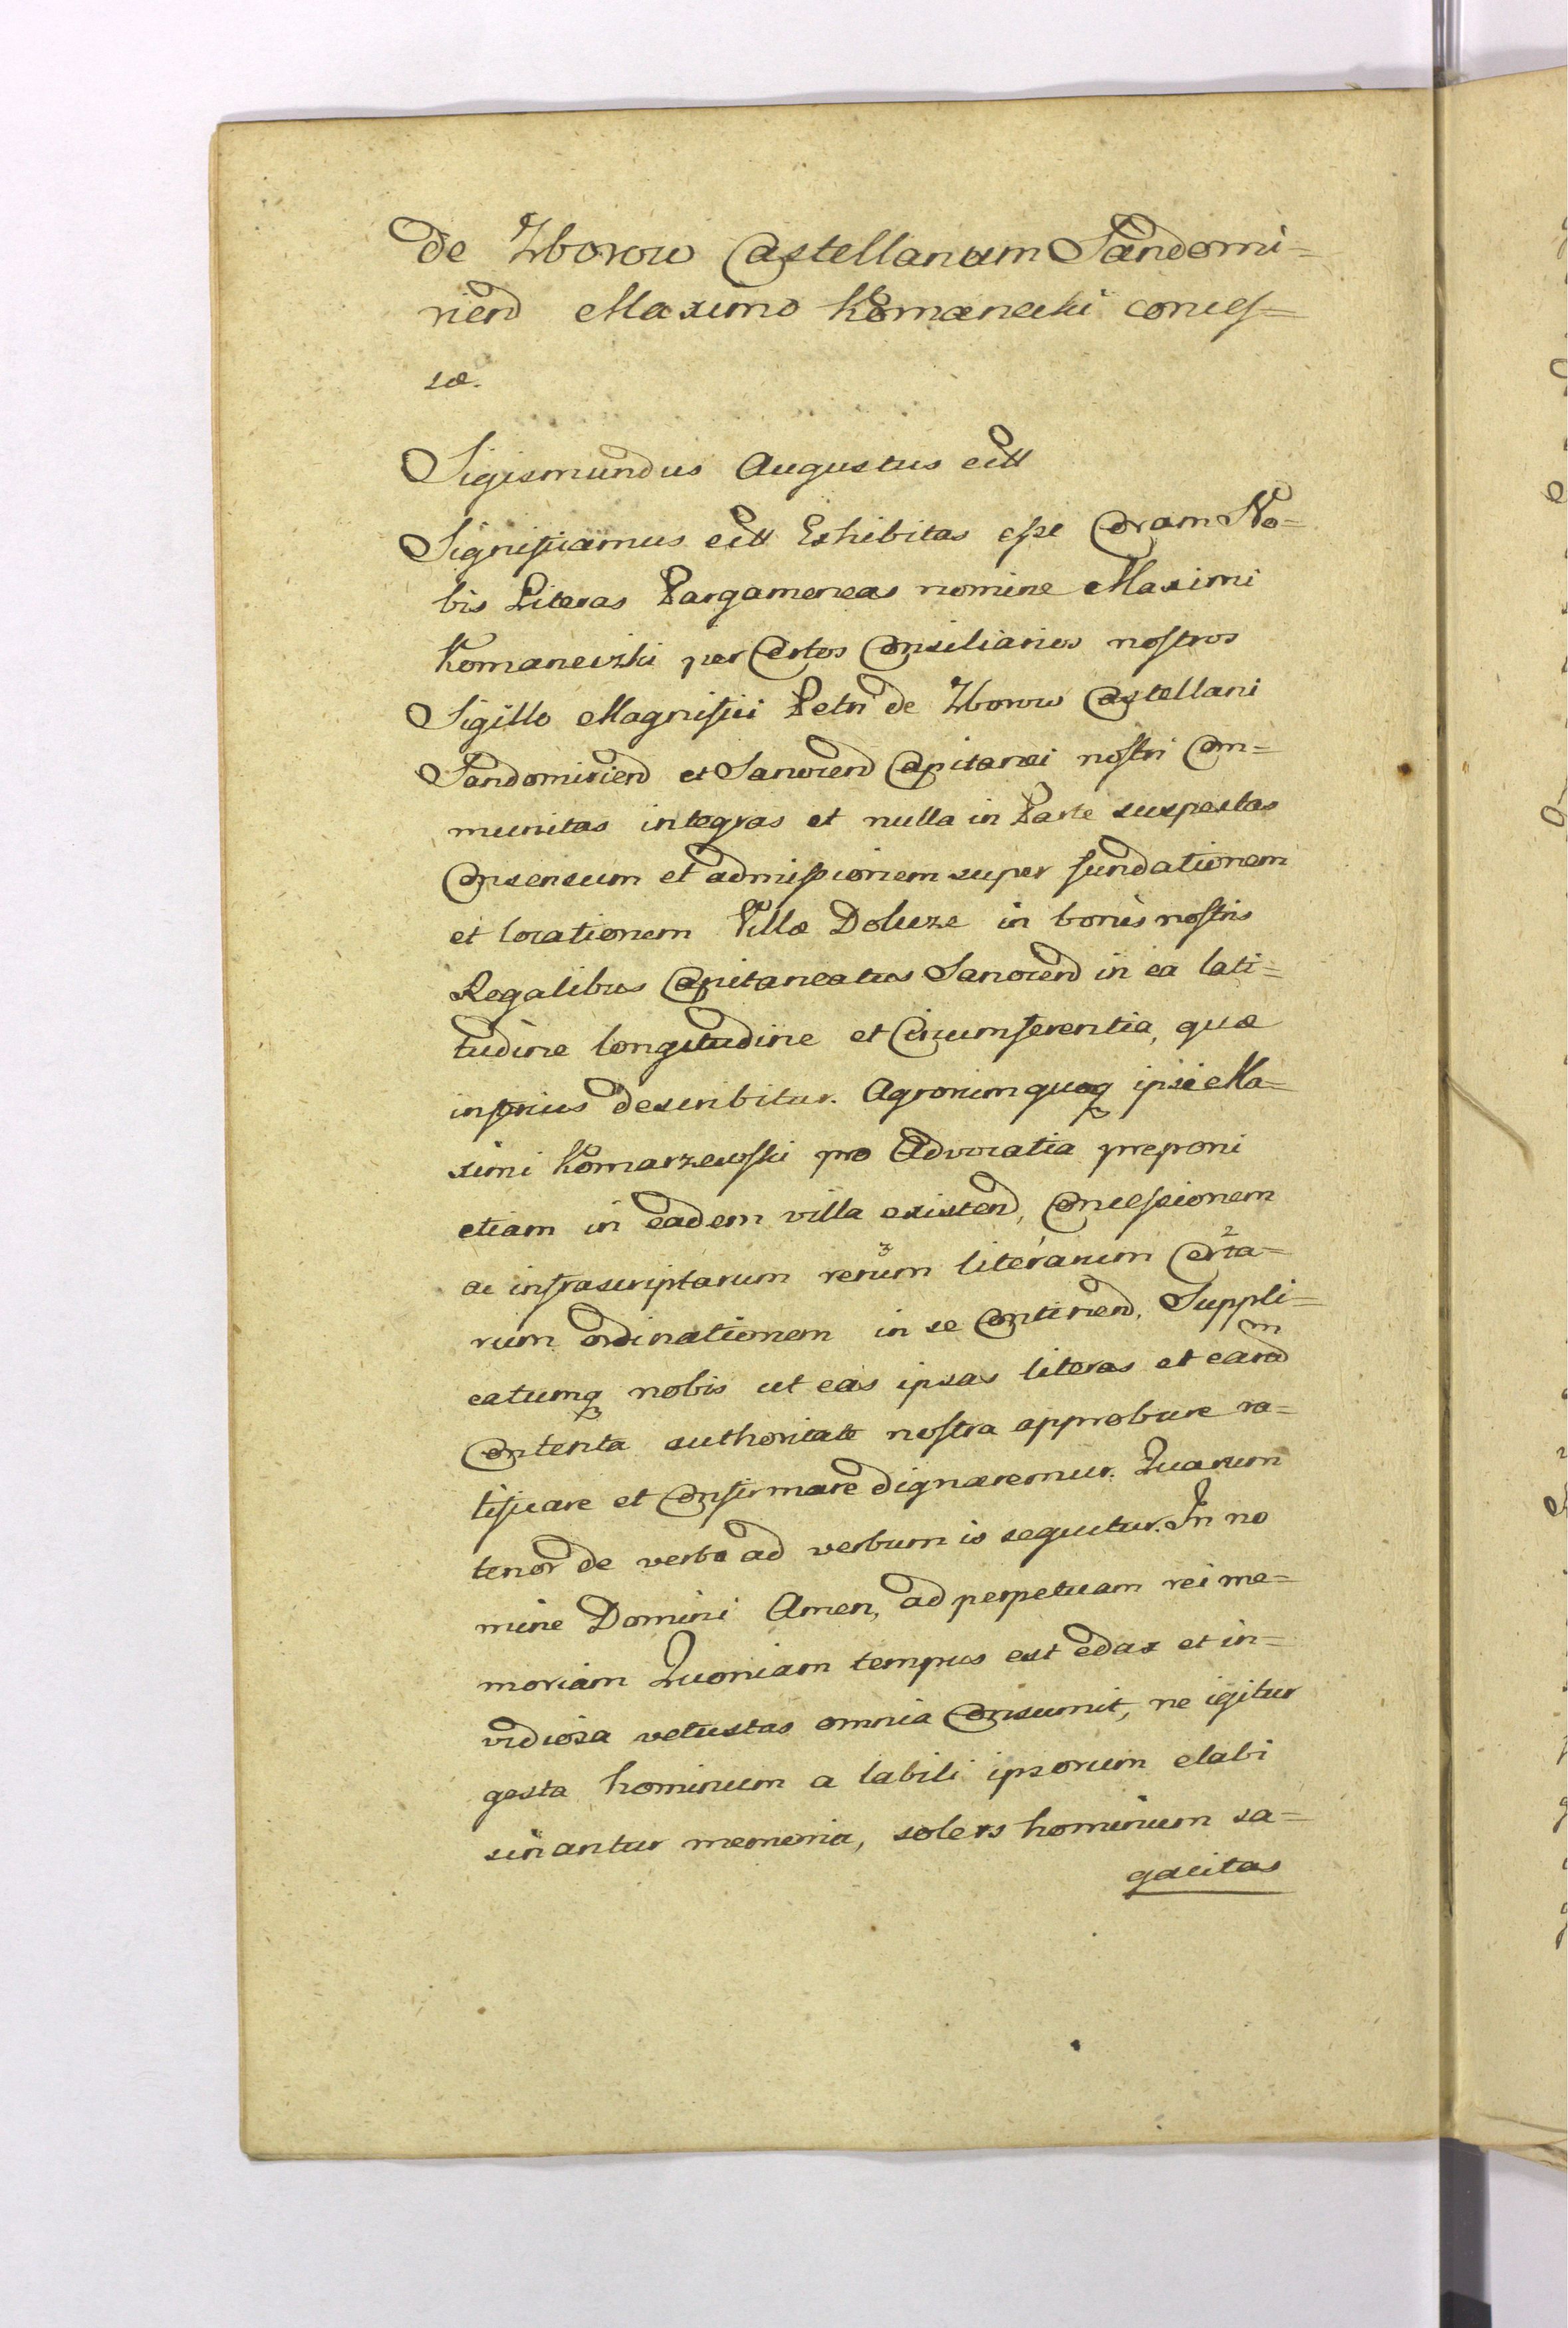 de Zborow Castellanum Sandomi=
riend Maximo Komanecki conces=
sæ.
Sigismundus Augustus ett
Significamus ett Exhibitas esse Coram No=
bis Literas Pargameneas nomine Maximi
Komaneczki per Certos Consiliarios nostros
Sigillo Magnifici Petri de Zborow Castellani
Sandomiriend et Sanociend Capitanei nostri Com=
munitas integras et nulla in Parte suspectas
Consensum et admissionem super fundationem
et locationem Villæ Doluze in bonis nostris
Regalibus Capitaneatus Sanociend in ea lati=
tudine longitudine et Circumferentia, quæ
inferius describitur. Agrorumquoq ipsi Ma=
ximi Komarzewski pro Advocatia preponi
etiam in eadem villa existend, Concessionem
ac infrascriptarum rerum literarum Certa=
rum ordinationem in se Continend. Suppli=
catumq nobis ut eas ipsas literas et earnd
Contenta authoritate nostra approbare ra=
tificare et Confirmare dignaremur. Quarum
tenor de verbo ad verbum is sequitur. In no
mine Domini Amen, ad perpetuam rei me=
moriam Quoniam tempus est edax et in=
vidiosa vetustas omnia Consumit, ne igitur
gesta hominum a labili ipsorum elabi
sinantur memoria, solers hominum sa=
gacitas